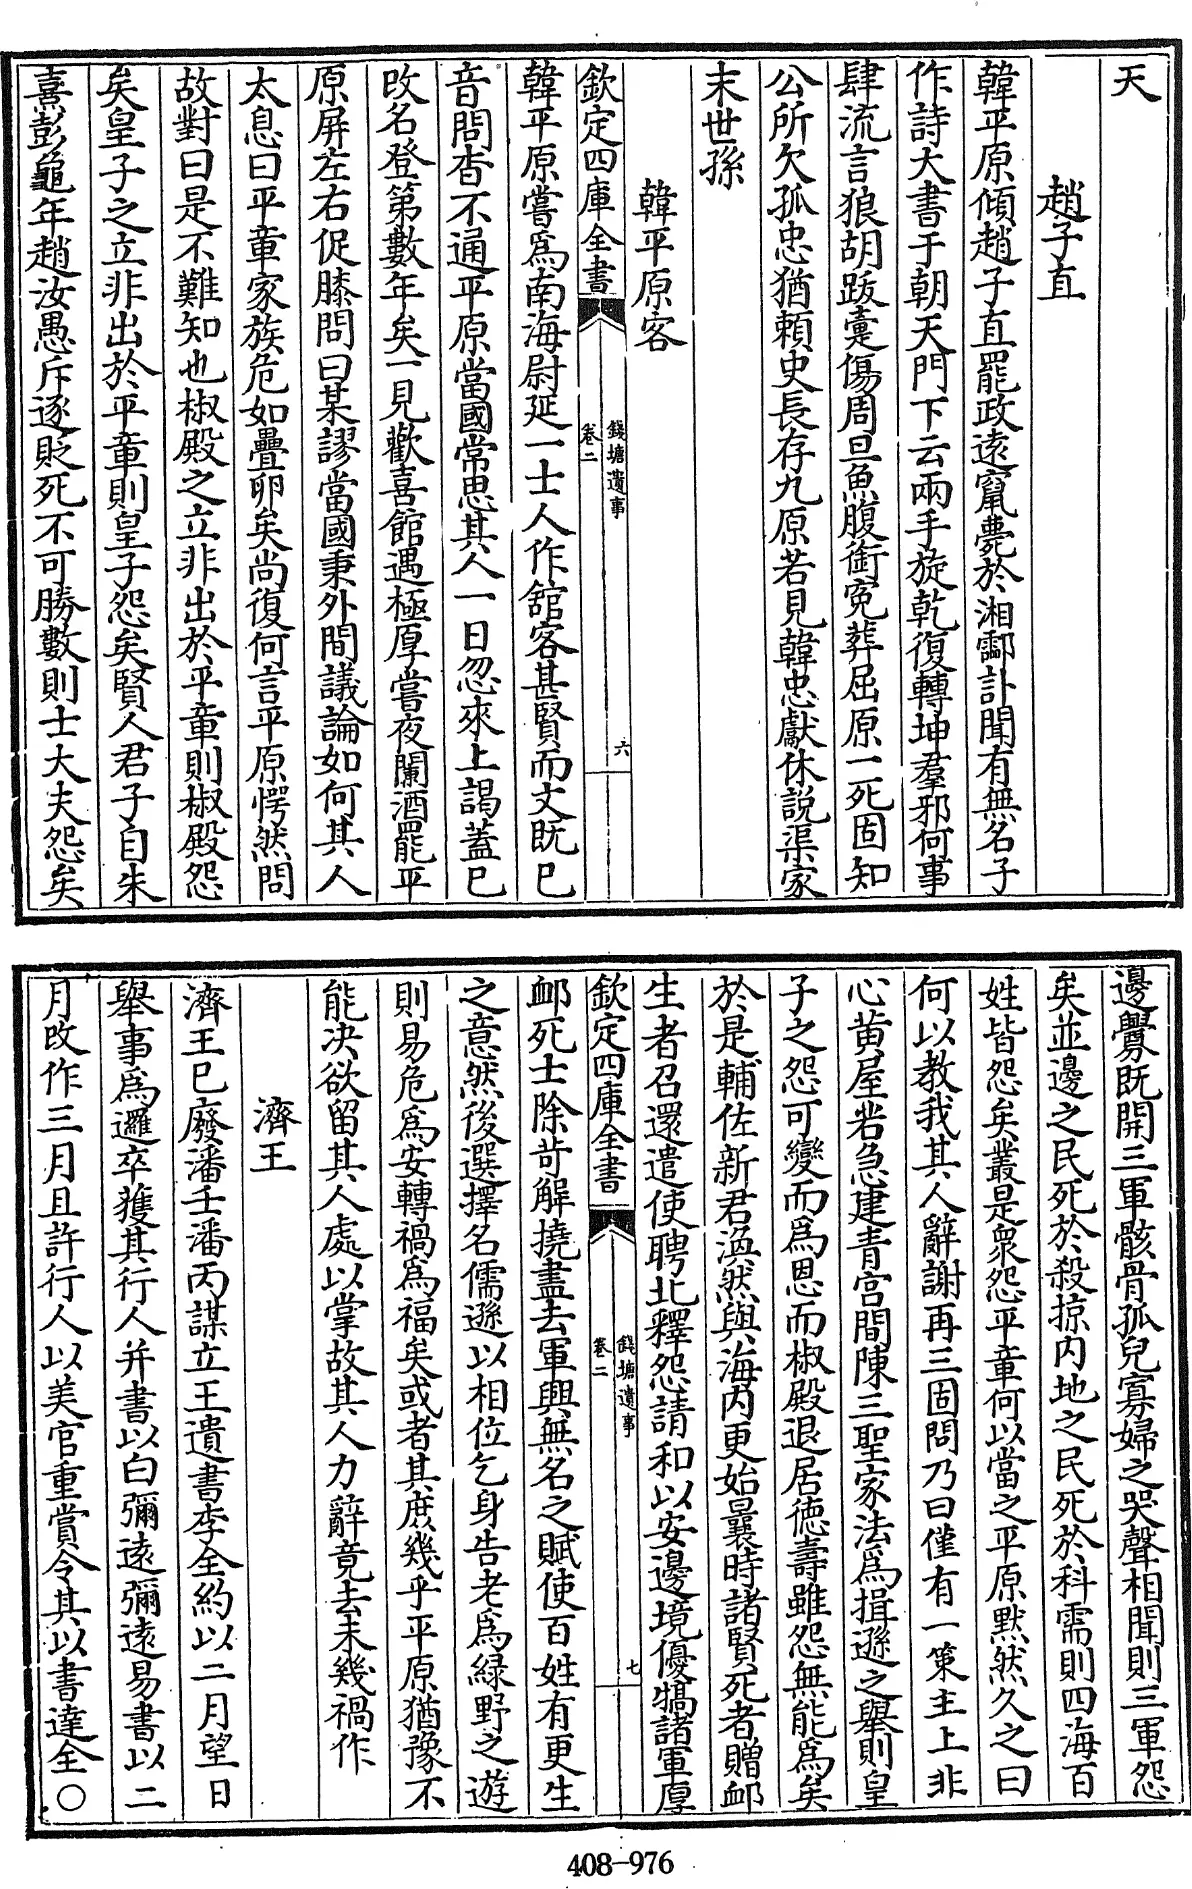 天
趙子直
韓平原傾趙子直罷政遠竄薨於湘鄠訃聞有無名子
作詩大書于朝天門下云兩手旋乾復轉坤羣邪何事
肆流言狼胡跋疐傷周旦魚腹銜寃葬屈原一死固知
公所欠孤忠猶賴史長存九原若見韓忠獻休説渠家
末世孫
韓平原客
欽定四庫全書
錢塘遺事
卷二
六
韓平原嘗爲南海尉延一士人作館客甚賢而文既已
音問杳不通平原當國常思其人一日忽來上謁蓋已
改名登第數年矣一見歡喜館遇極厚嘗夜闌酒罷平
原屏左右促膝問曰某謬當國秉外間議論如何其人
太息曰平章家族危如疊卵矣尚復何言平原愕然問
故對曰是不難知也椒殿之立非出於平章則椒殿怨
矣皇子之立非出於平章則皇子怨矣賢人君子自朱
熹彭龜年趙汝愚斥逐貶死不可勝數則士大夫怨矣
邊釁既開三軍骸骨孤兒寡婦之哭聲相聞則三軍怨
矣並邊之民死於殺掠内地之民死於科需則四海百
姓皆怨矣叢是衆怨平章何以當之平原默然久之曰
何以教我其人辭謝再三固問乃曰僅有一策主上非
心黄屋若急建青宫開陳三聖家法爲揖遜之舉則皇
子之怨可變而爲恩而椒殿退居徳壽雖怨無能爲矣
於是輔佐新君渙然與海内更始曩時諸賢死者贈卹
生者召還遣使聘北釋怨請和以安邊境優犒諸軍厚
欽定四庫全書
錢塘遺事
卷二
七
卹死士除苛解撓盡去軍興無名之賦使百姓有更生
之意然後選擇名儒遜以相位乞身告老爲緑野之遊
則易危爲安轉禍爲福矣或者其庶幾乎平原猶豫不
能决欲留其人處以掌故其人力辭竟去未幾禍作
濟王
濟王已廢潘壬潘丙謀立王遺書李全約以二月望日
舉事爲邏卒獲其行人并書以白彌遠彌遠易書以二
月改作三月且許行人以美官重賞令其以書達全○
408-976